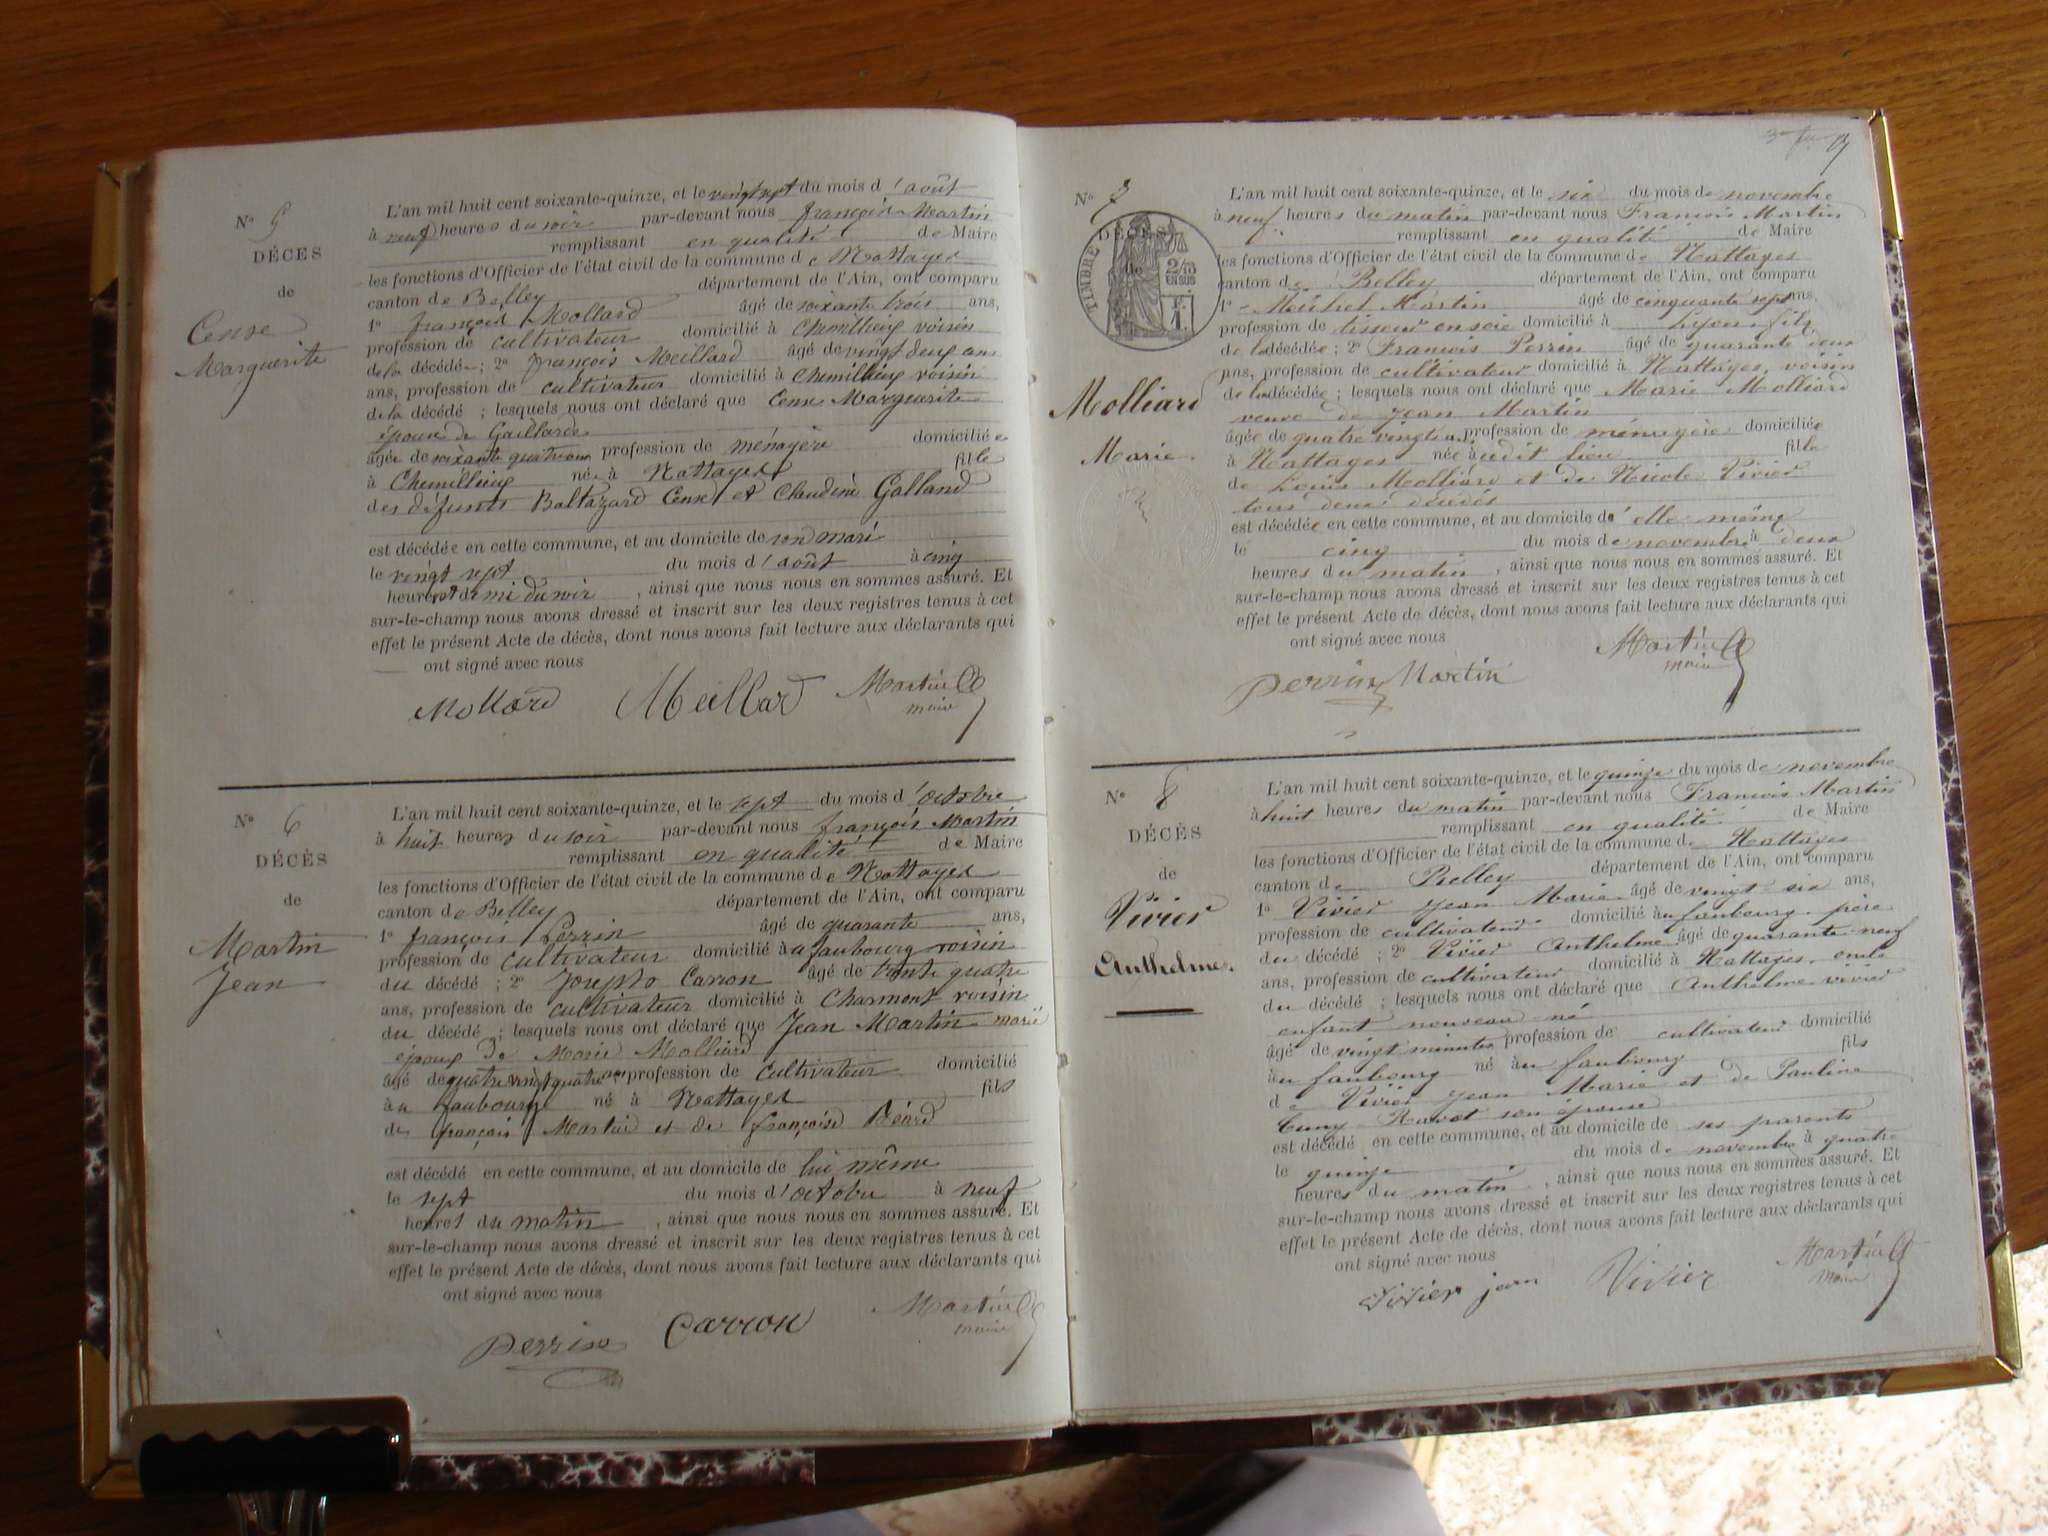 N° 5
DÉCES
de
Cense
Marguerite
L'an mil huit cent soixante-quinze, et le vingt sept du mois d'août
à neuf heures du soir par-devant nous françois Martin
remplissant en qualité de Maire
les fonctions d'Officier de l'état civil de la commune de Nattages
canton de Belley département de l'Ain, ont comparu
1° françois Mollard âgé de soixante trois ans,
profession de cultivateur domicilié à Chemillieu voisin
de la décédée ; 2° françois Meillard âgé de vingt deux ans
ans, profession de cultivateur domicilié à Chemillieu voisin
de la décédé ; lesquels nous ont déclaré que Cense Marguerite
épouse de Gaillard
âgée de soixante quatre ans profession de ménagère domiciliée
à Chemillieu née à Nattages fille
des défunts Baltazard Cense et Claudine Galland
est décédée en cette commune, et au domicile de son mari
le vingt sept du mois d'août à cinq
heures et demi du soir , ainsi que nous nous en sommes assuré. Et
sur-le-champ nous avons dressé et inscrit sur les deux registres tenus à cet
effet le présent Acte de décès, dont nous avons fait lecture aux déclarants qui
ont signé avec nous
Mollard Meillard Martin
maire
N° 6
DÉCÈS
de
Martin
Jean
L'an mil huit cent soixante-quinze, et le sept du mois d'octobre
à huit heures du soir par-devant nous françois Martin
remplissant en qualité de Maire
les fonctions d'Officier de l'état civil de la commune de Nattages
canton de Belley département de l'Ain, ont comparu
1° françois Perrin âgé de quarante ans,
profession de cultivateur domicilié au faubourg voisin
du décédé ; 2° Joseph Carron âgé de trente quatre
ans, profession de cultivateur domicilié à Charmont voisin
du décédé ; lesquels nous ont déclaré que Jean Martin marié
époux de Marie Molliard
âgé de quatre vingt quatre ans profession de cultivateur domicilié
au faubourg né à Nattages fils
de françois Martin et de françoise Béard
est décédé en cette commune, et au domicile de lui même
le sept du mois d'octobre à neuf
heures du matin , ainsi que nous nous en sommes assuré. Et
sur-le-champ nous avons dressé et inscrit sur les deux registres tenus à cet
effet le présent Acte de décès, dont nous avons fait lecture aux déclarants qui
ont signé avec nous
Perrin Carron Martin
maire
N° 7
TIMBRE DE
2/10
EN SUS
F.
1.
Molliard
Marie
L'an mil huit cent soixante-quinze, et le six du mois de novembre
à neuf heures du matin par-devant nous François Martin
remplissant en qualité de Maire
les fonctions d'Officier de l'état civil de la commune de Nattages
canton de Belley département de l'Ain, ont comparu
1° Michel Martin âgé de cinquante sept ans,
profession de tisseur en soie domicilié à Lyon fils
de la décédée ; 2° François Perrin âgé de quarante deux
ans, profession de cultivateur domicilié à Nattages, voisin
de la décédée ; lesquels nous ont déclaré que Marie Molliard
veuve de Jean Martin
âgée de quatre vingt profession de ménagère domiciliée
à Nattages née audit lieu fille
de Louis Molliard et de Nicole Vivier
tous deux décédés
est décédée en cette commune, et au domicile d'elle même
le cinq du mois de novembre à deux
heures du matin , ainsi que nous nous en sommes assuré. Et
sur-le-champ nous avons dressé et inscrit sur les deux registres tenus à cet
effet le présent Acte de décès, dont nous avons fait lecture aux déclarants qui
ont signé avec nous
Perrin Martin Martin
maire
N° 8
DÉCÈS
de
Vivier
Anthelme.
L'an mil huit cent soixante-quinze, et le quinze du mois de novembre
à huit heures du matin par-devant nous François Martin
remplissant en qualité de Maire
les fonctions d'Officier de l'état civil de la commune de Nattages
canton de Belley département de l'Ain, ont comparu
1° Vivier Jean Marie âgé de vingt six ans,
profession de cultivateur domicilié au faubourg père
du décédé ; 2° Vivier Anthelme âgé de quarante neuf
ans, profession de cultivateur domicilié à Nattages, oncle
du décédé ; lesquels nous ont déclaré que Anthelme vivier
enfant nouveau né
âgé de vingt minutes profession de cultivateur domicilié
au faubourg né au faubourg fils
de Vivier Jean Marie et de Pauline
Ravet son épouse
est décédé en cette commune, et au domicile de ses parents
le quinze du mois de novembre à quatre
heures du matin , ainsi que nous nous en sommes assuré. Et
sur-le-champ nous avons dressé et inscrit sur les deux registres tenus à cet
effet le présent Acte de décès, dont nous avons fait lecture aux déclarants qui
ont signé avec nous
Vivier jean Vivier Martin
maire